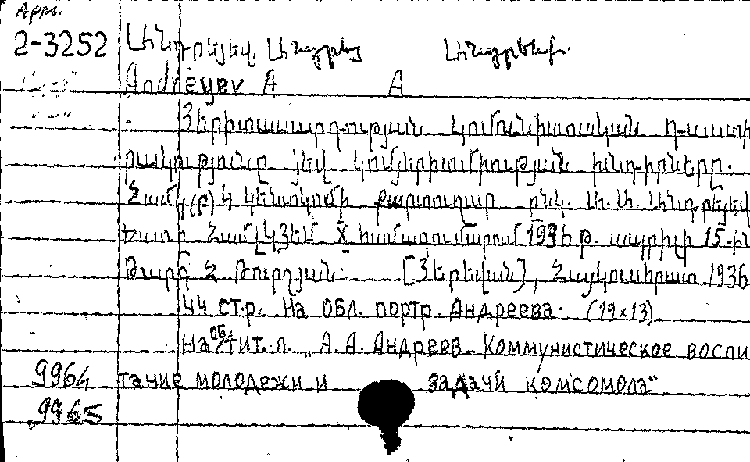 Арм.
2-3252 Անդրեյեվ Անդրեյ Անդրեյեվիչ
Andreyev A A
Յերիտասարդության կոմունիստական դաստի
րակությունը յեվ կոմյերիտմիության խնդիրները.
ՀամԿ(բ)Կ Կենտկոմի քարտուղար ընկ. Ա. Ա. Անդրեյեվի
ճառը ՀամԼԿՅԵՄ X համագումարում 1936 թ. ապրիլի 15-ին
Թարգ. Հ. Թուրշյան. [Յերեվան], Հայկուսհրատ 1936
44 стр. На обл. портр. Андреева. (19x13)
На об. тит. л. „А. А. Андреев Коммунистическое воспи
9964 тание молодежи и задачи комсомола"
9965